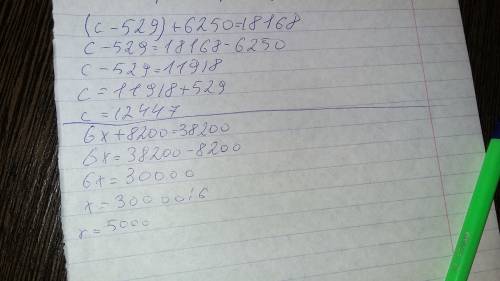 (c-529)+6250=18168
c-529=18168-6250
c-529=11918
c=11918+529
c=12447
6x+8200=38200
6x=38200-8200
6x=30000
x=30000:6
x=5000